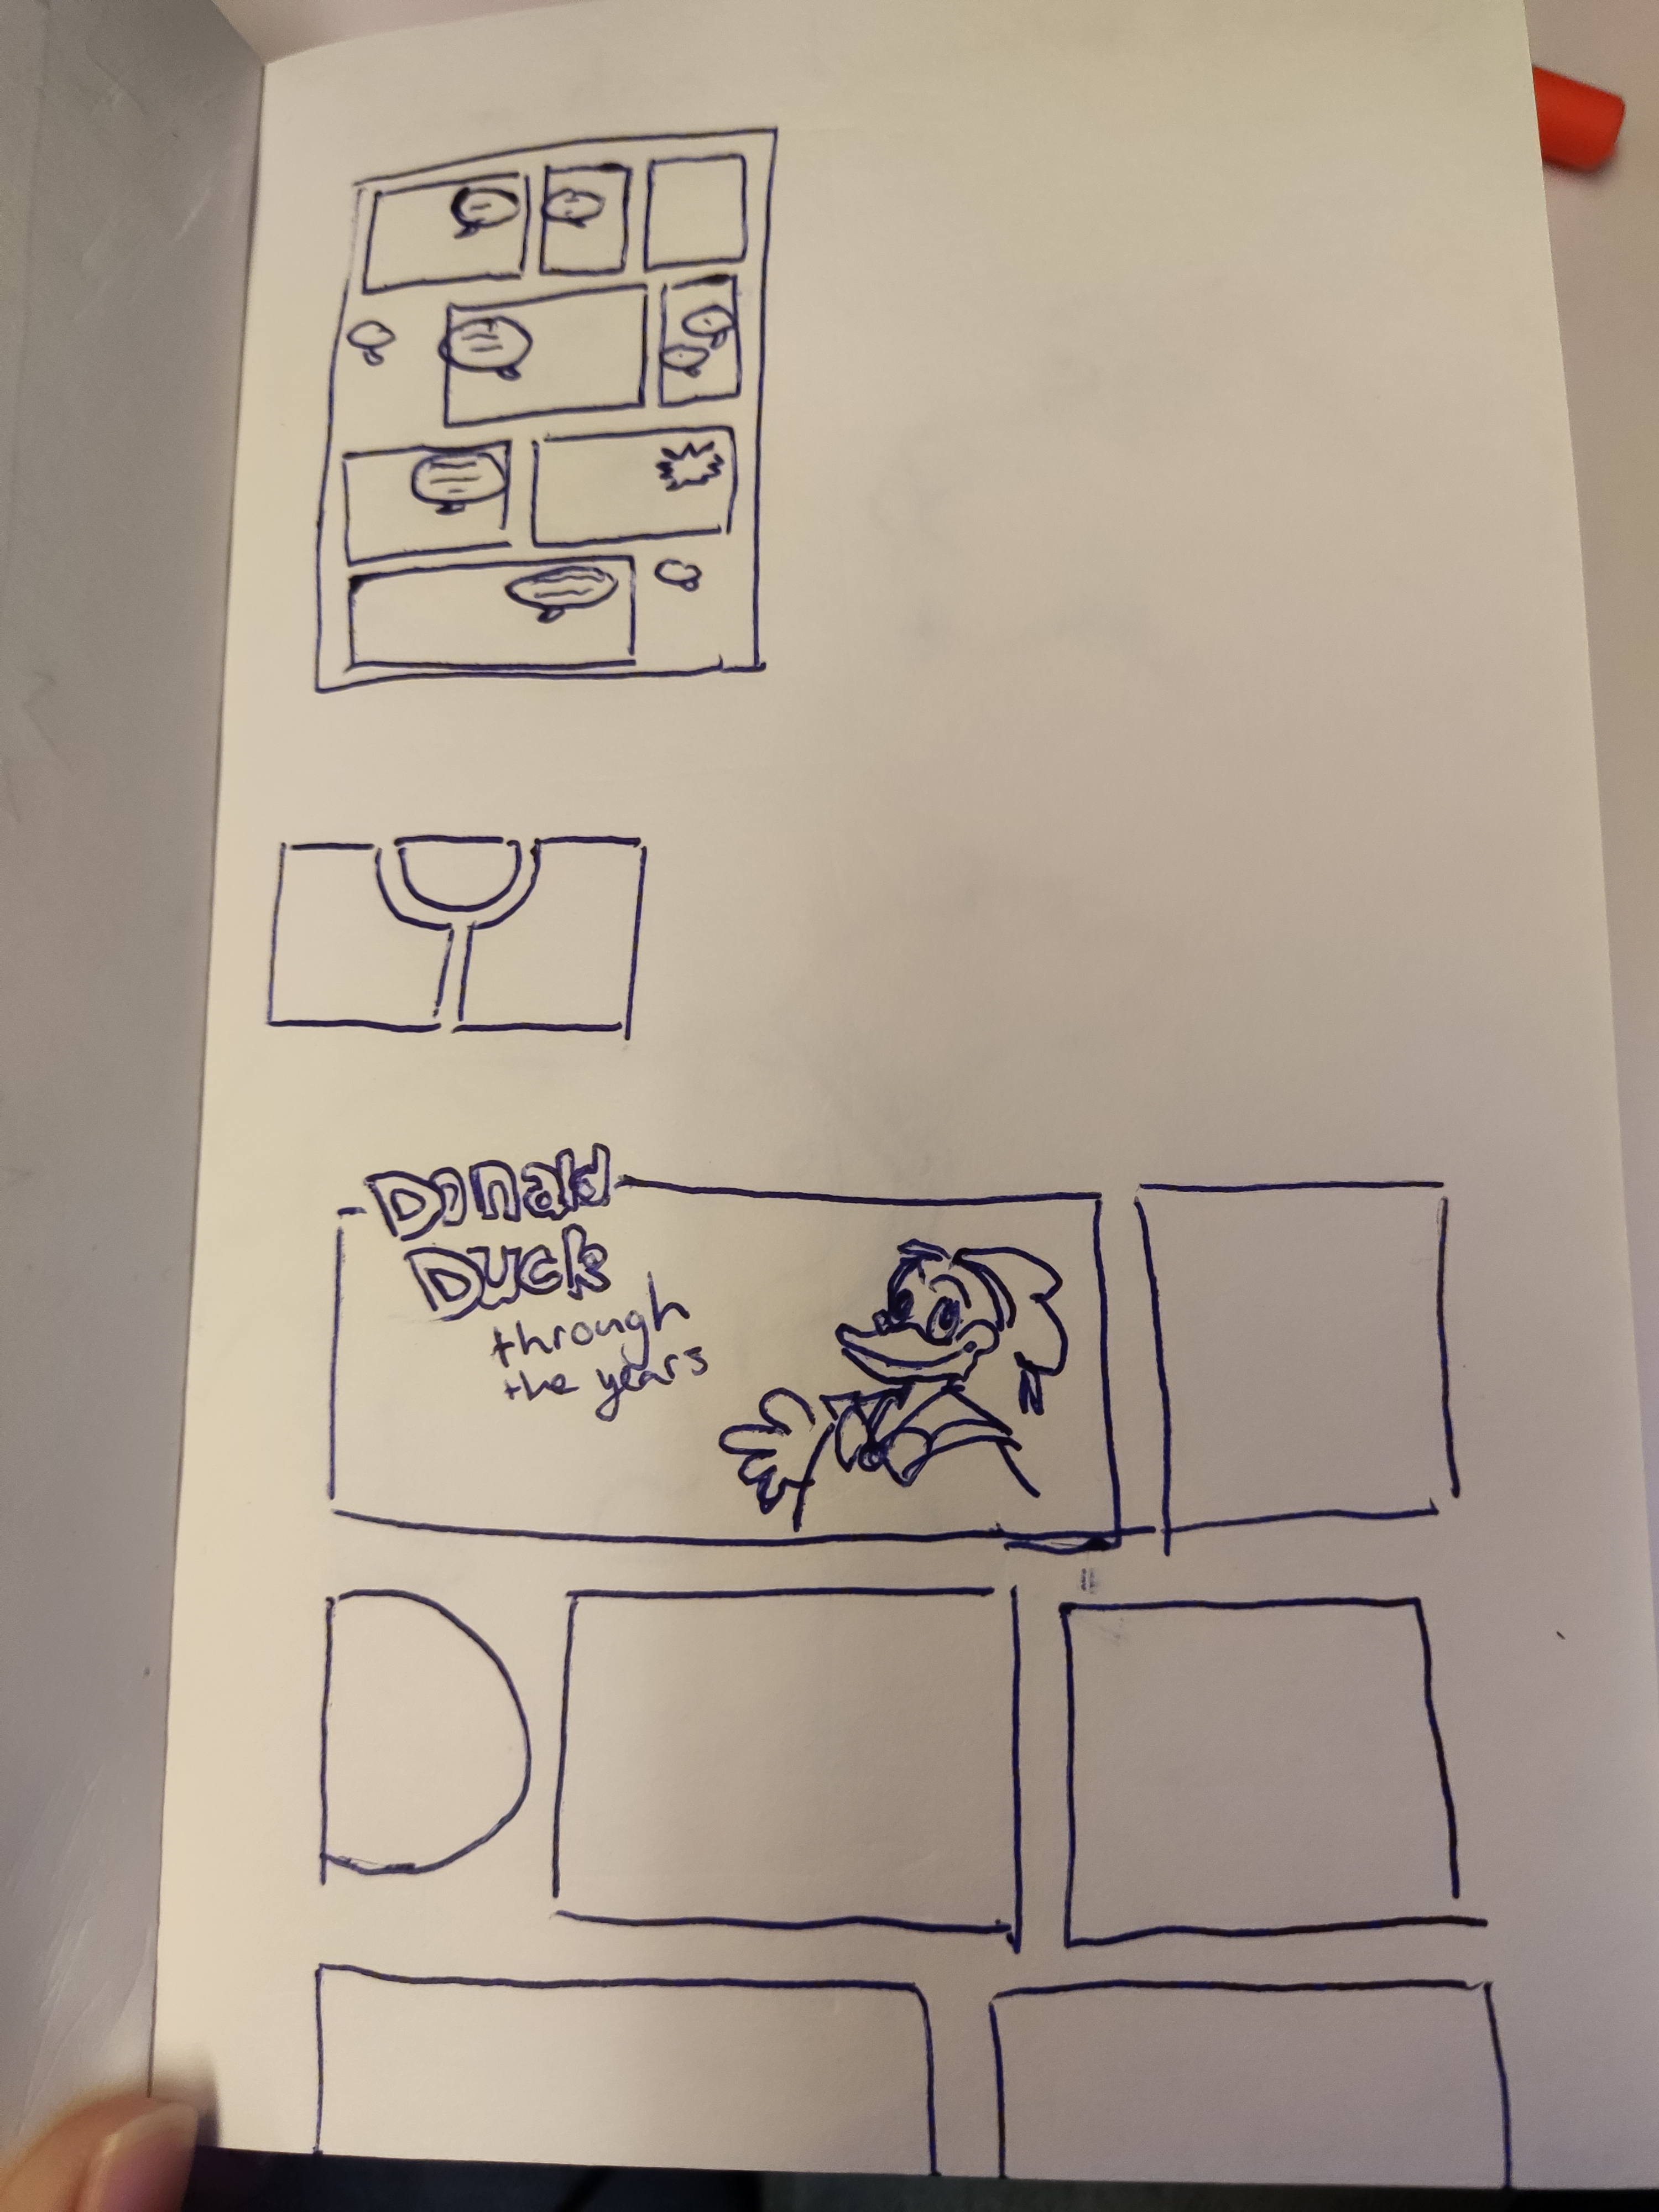 Donald
Duck
through
the years